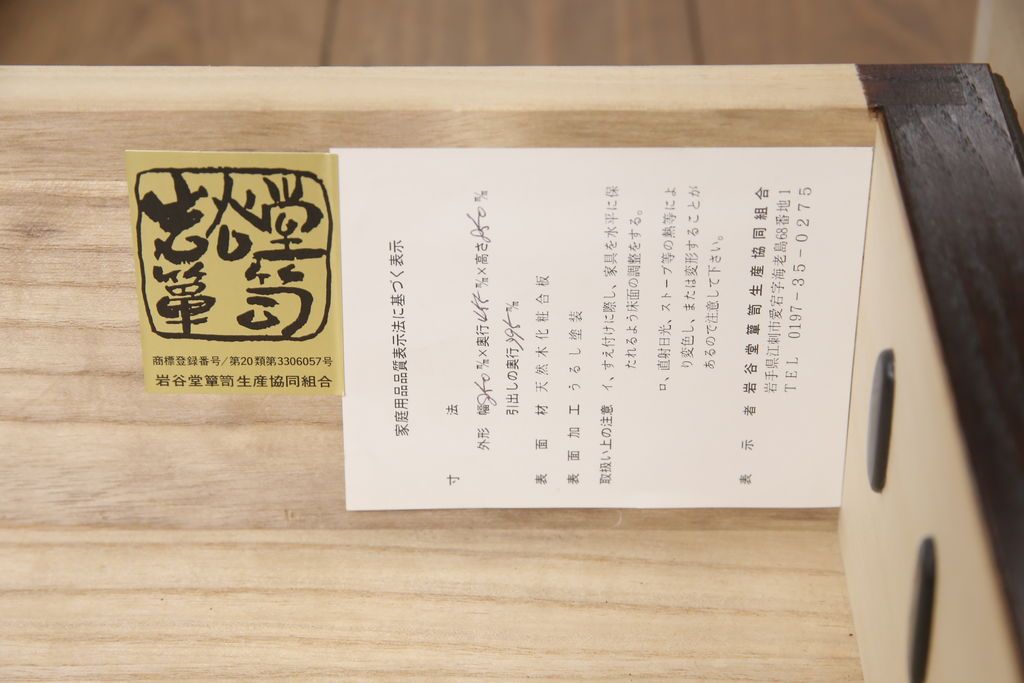 岩谷堂
簞笥
商標登録番号/第20類第3306057号
岩谷堂簞笥生産協同組合
家庭用品品質表示法に基づく表示
寸 法
外形 幅 ㎜×奥行 ㎜×高さ ㎜
引出しの奥行 395㎜
表面材 天然木化粧合板
表面加工 うるし塗装
取扱い上の注意 イ、すえ付けに際し、家具を水平に保
たれるよう床面の調整をする。
ロ、直射日光、ストーブ等の熱等によ
り変色し、または変形することが
あるので注意して下さい。
表示者 岩谷堂簞笥生産協同組合
岩手県江刺市愛宕字海老島68番地1
TEL 0197-35-0275